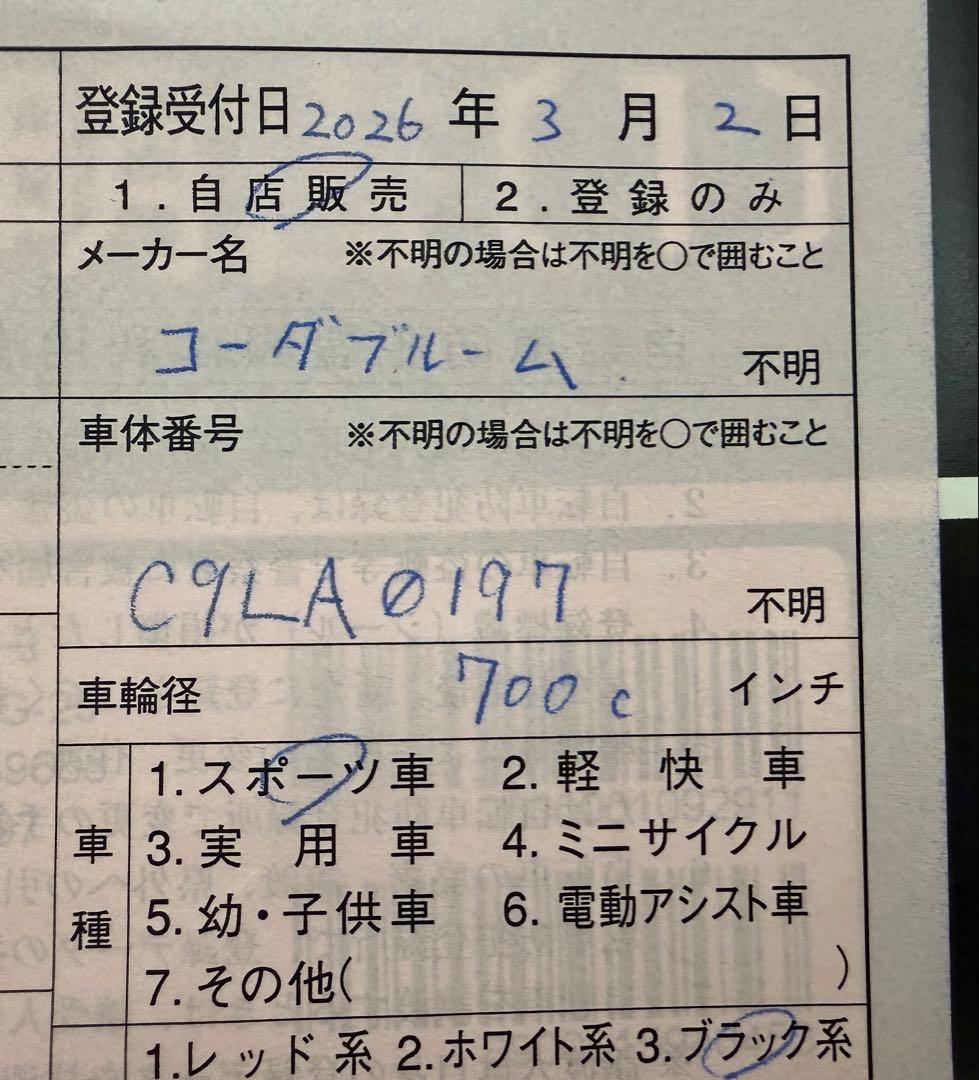 登録受付日 2026 年 3 月 2 日
1.自店販売 2.登録のみ
メーカー名 ※不明の場合は不明を○で囲むこと
コーダブルーム 不明
車体番号 ※不明の場合は不明を○で囲むこと
C9LA0197 不明
車輪径 700c インチ
車種
1.スポーツ車 2.軽快車
3.実用車 4.ミニサイクル
5.幼・子供車 6.電動アシスト車
7.その他( )
1.レッド系 2.ホワイト系 3.ブラック系